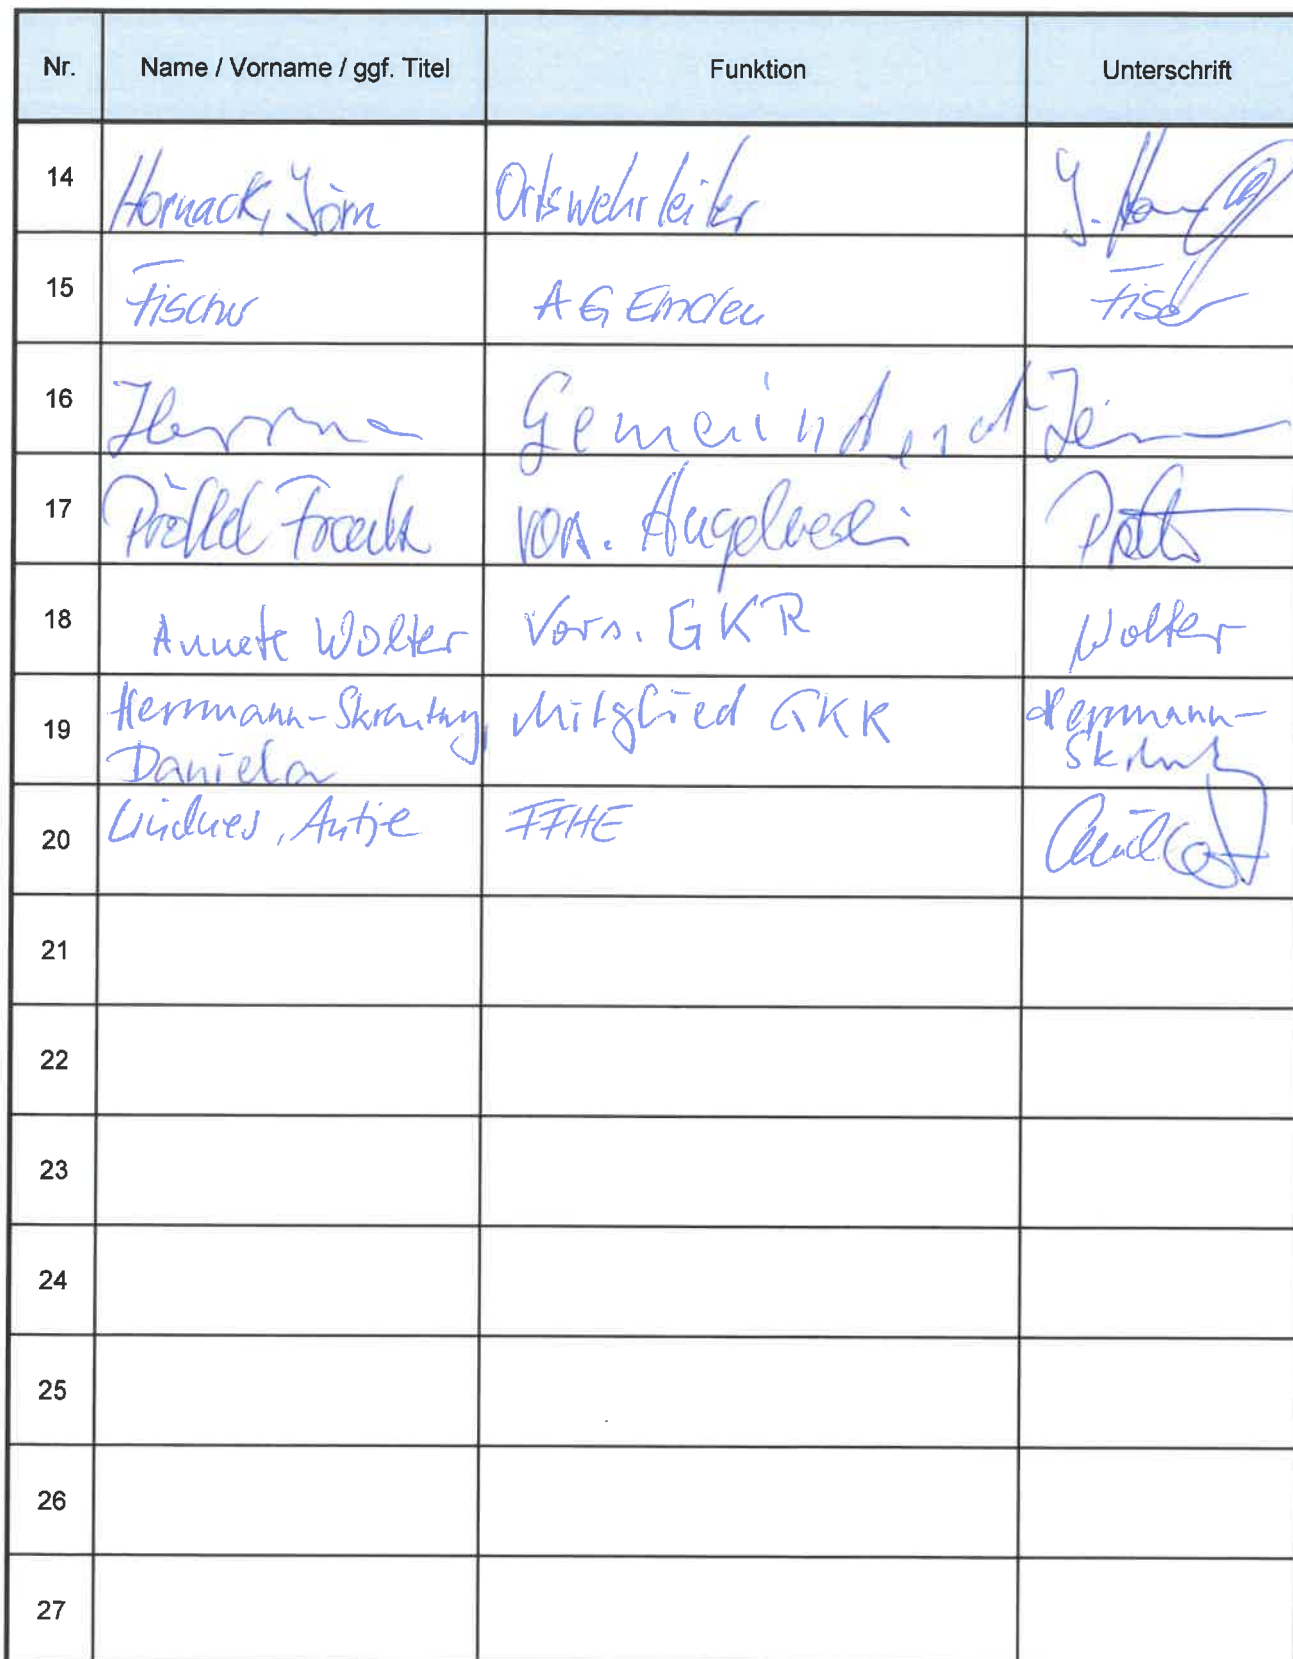 Nr. Name / Vorname / ggf. Titel Funktion Unterschrift
14 Hornack, Jörn Ortswehrleiter J.
15 Fischer AG Emden
16 Gemeinderat
17 Frank Vors.
18 Annete Wolter Vors. GKR Wolter
19 Herrmann-Skrentny, Mitglied GKR Herrmann-
Daniela
20 Lindner, Antje FFHE
21
22
23
24
25
26
27